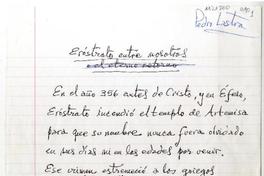 MILADEO 0901
Pedro Lastra
Eróstrato entre nosotros
o el eterno retorno
En el año 356 antes de Cristo, y en Efeso,
Eróstrato incendió el templo de Artemisa
para que su nombre nunca fuera olvidado
en sus días ni en las edades por venir.
Ese crimen estremeció a los griegos